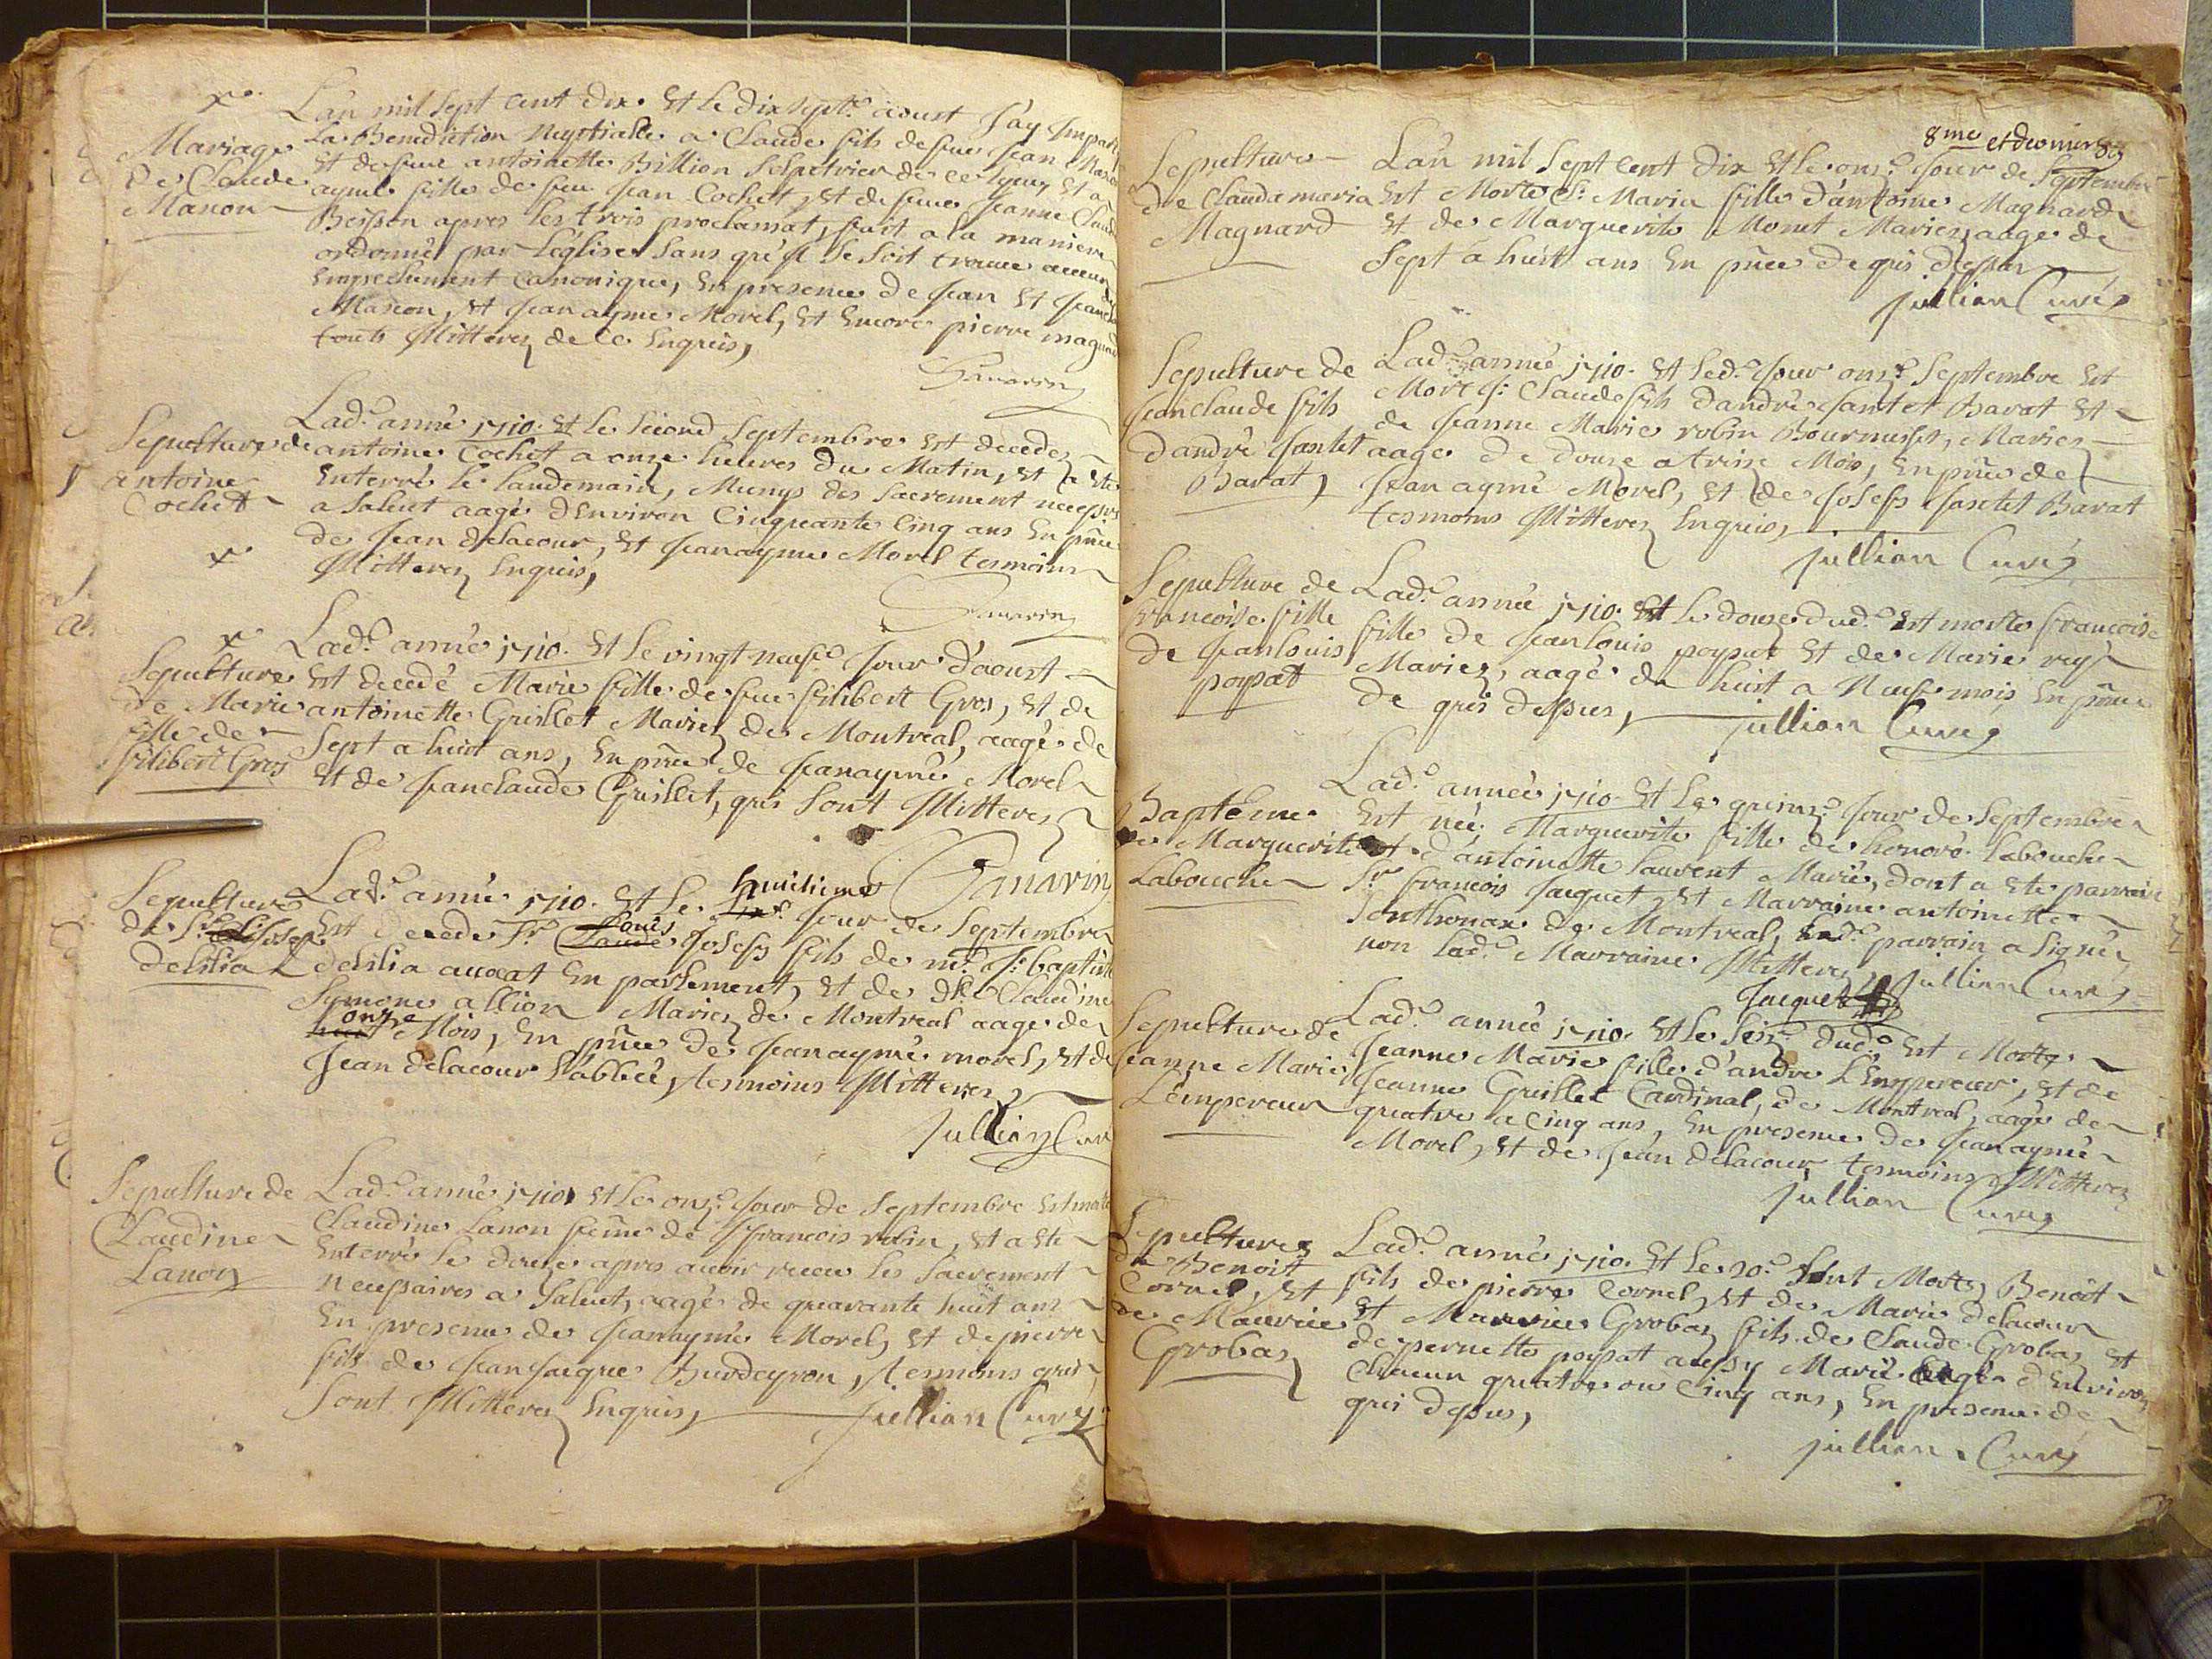 L'an mil sept cent dix et le dix sept.e aoust J'ay Impar
Mariage
De Claude
Manon
La Benediction Nuptialle a Claude fils de feu Jean
et de feue antoinette Billion Salpetrier de ce lyeu, et a
aymé fille de feu Jean Cochet, et de feue Jeanne Claud
Besson apres les trois proclamat, fait a la maniere
ordonné par l'église sans qu'il se soit trouvé aucun
Empechement Canonique, En presence de Jean et Jean
Manon, et Jean aymé Morel, et Encore pierre magnard
touts Illitterez de ce Enquis,
Sanarin
Sepulture de
antoine
Cochet
Lad.e année 1710. Et le second Septembre est decedé
antoine Cochet a onze heures du Matin, et a ete
Enterré le landemain, Munys des Sacrement necess.res
a Salut aagé d'Environ Cinquante Cinq ans En pñce
de Jean delacour, et Jean aymé Morel tesmoins
Illitterez Enquis,
Sanarin
Sepulture
de Marie
fille de
filibert Gros
Lad.e année 1710. Et le vingt neuf.e Jour d'aoust
est decedé Marie fille de feu filibert Gros, et de
antoinette Grillet Mariez de Montreal, aagé de
sept a huit ans, En pñce de Jean aymé Morel
et de Jean claude Grillet, qui sont Illitterez
Sanarin
Sepulture
de Sr.
delilia
Lad.e année 1710. Et le huitieme Jour de Septembre
est decedé Sr. Louis Joseph fils de m.e J: baptiste
delilia avocat En parlement, et de dlle Claudine
Symone allion Mariez de Montreal aagé de
onze Mois, En pñce de Jean aymé morel, et de
Jean delacour l'abbée, tesmoins Illitterez
Jullian Curé
Sepulture de
Claudine
Lanon
Lad.e année 1710. Et le onz.e Jour de Septembre est morte
Claudine Lanon feñe de francois robin, et a ete
Enterré le douze apres avoir receu les Sacrement
necessaires a Salut, aagé de quarante huit ans
En presence de Jean aymé Morel, et de pierre
fils de Jean Jacque Burdeyron, tesmoins qui
sont Illitterez Enquis,
Jullian Curé
8me et dernier
Sepulture
de Claudamaria
Magnard
L'an mil sept cent dix et le onz.e Jour de Septembre
est Morte Cl: Maria fille d'antoine Magnard
et de Marguerite Monet Mariez aagé de
sept a huit ans En pñce de qui dessus
Jullian Curé
Sepulture de
Jean claude fils
d'andré Jantet
Barat,
Lad.e année 1710. Et led.e Jour onz.e Septembre est
Mort J: Claude fils d'andré Jantet Barat et
de Jeanne Marie robin Bournisset, Mariez
aagé de douze a treise Mois, En pñce de
Jean aymé Morel, et de Joseph Jantet Barat
tesmoins Illitterez Enquis,
Jullian Curé
Sepulture de
francoise fille
de Jeanlouis
poysat
Lad.e année 1710. Et le douze dud.e Est morte francoise
fille de Jeanlouis poysat et de Marie rey
Mariez, aagé de huit a Neuf mois En pñce
de qui dessus,
Jullian Curé
Bapteme
de Marguerite
Labouche
Lad.e année 1710. Et le quinz.e Jour de Septembre
Est née Marguerite fille de honoré labouche
et d'antoinette laurent Marié, dont a ete parrain
Sr. francois Jacquet, et Marraine antoinette
Jonthonax de Montreal, led.e parrain a signé,
non lad.e Marraine Illitterez,
Jullian Curé
Jacquet
Sepulture de
Jeanne Marie
L'empereur
Lad.e année 1710. Et le seiz.e dud.e Est Morte
Jeanne Marie fille d'andre L'Empereur, et de
Jeanne Grillet Cardinal, de Montreal, aagé de
quatre a Cinq ans, En presence de Jean aymé
Morel, et de Jean delacour, tesmoins Illitterez
Jullian Curé
Sepultures
de Benoit
Cornel, et
de Maurice
Grobas
Lad.e année 1710. Et le 20.e sont Morts, Benoit
fils de pierre Cornel, et de Marie delacour
et Maurice Grobas fils de Claude Grobas et
de pernette poysat aussy Marié aagé d'Environ
Chacun quatre ou Cinq ans, En presence de
qui dessus,
Jullian Curé